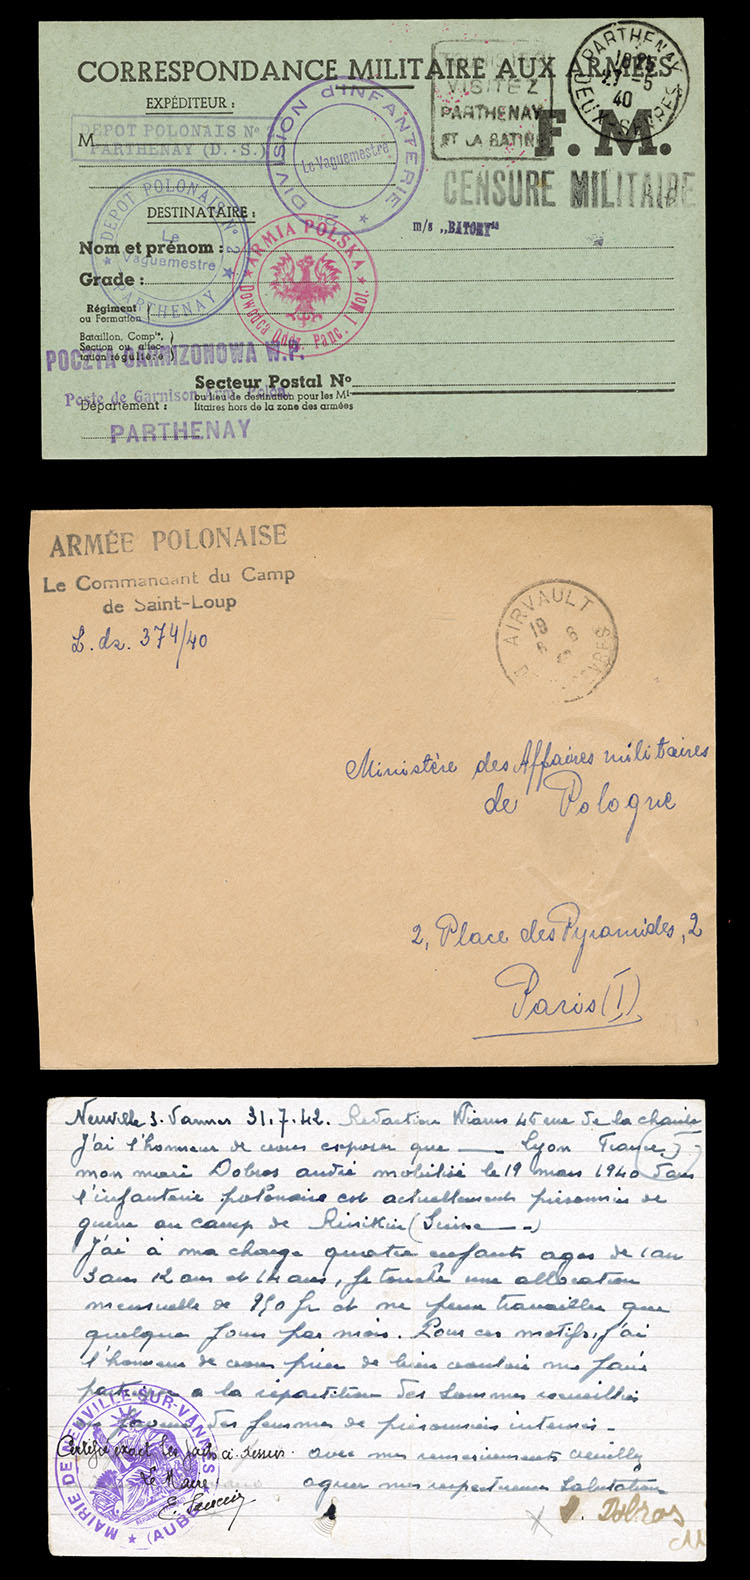 CORRESPONDANCE MILITAIRE AUX ARMÉES
EXPÉDITEUR :
M
DEPOT POLONAIS No
PARTHENAY (D.-S.)
DIVISION d'INFANTERIE
Le Vaguemestre
VISITEZ
PARTHENAY
ET LA
PARTHENAY
18 25
27-5
40
DEUX-SEVRES
F. M.
CENSURE MILITAIRE
m/s „BATORY"
DESTINATAIRE :
DEPOT POLONAIS No 2
Le
Vaguemestre
PARTHENAY
ARMIA POLSKA
Dowódca Oddz. Panc. i Mot.
Nom et prénom :
Grade :
Régiment
ou Formation
Bataillon, Comp
Section ou affec-
tation régulière
POCZTA GARNIZONOWA W.P.
Secteur Postal No
Poste de Garnison
ou lieu de destination pour les Mi-
Département :
litaires hors de la zone des armées
PARTHENAY
ARMÉE POLONAISE
Le Commandant du Camp
de Saint-Loup
L. dz. 374/40
AIRVAULT
19
6
Ministère des Affaires militaires
de Pologne
2, Place des Pyramides, 2
Paris (I)
Neuville s. Vannes 31.7.42. Rédaction de la charité
J'ai l'honneur de vous exposer que Lyon France
mon mari Dobros andré mobilisé le 19 mars 1940 dans
l'infanterie polonaise est actuellement prisonnier de
guerre au camp de (Suisse)
J'ai à ma charge quatre enfants ages de 1 an
3 ans 12 ans et 14 ans, je touche une allocation
mensuelle de 950 fr et ne peux travailler que
quelque jours par mois. Pour ces motifs, j'ai
l'honneur de vous prier de bien vouloir me faire
participer a la répartition des sommes recueillies
en faveur des femmes de prisonniers internés.
avec mes remerciements veuillez
agréer mes respectueuses salutations
Certifié exact les faits ci-dessus
Le Maire
MAIRIE DE NEUVILLE-SUR-VANNES
(AUBE)
Dobros